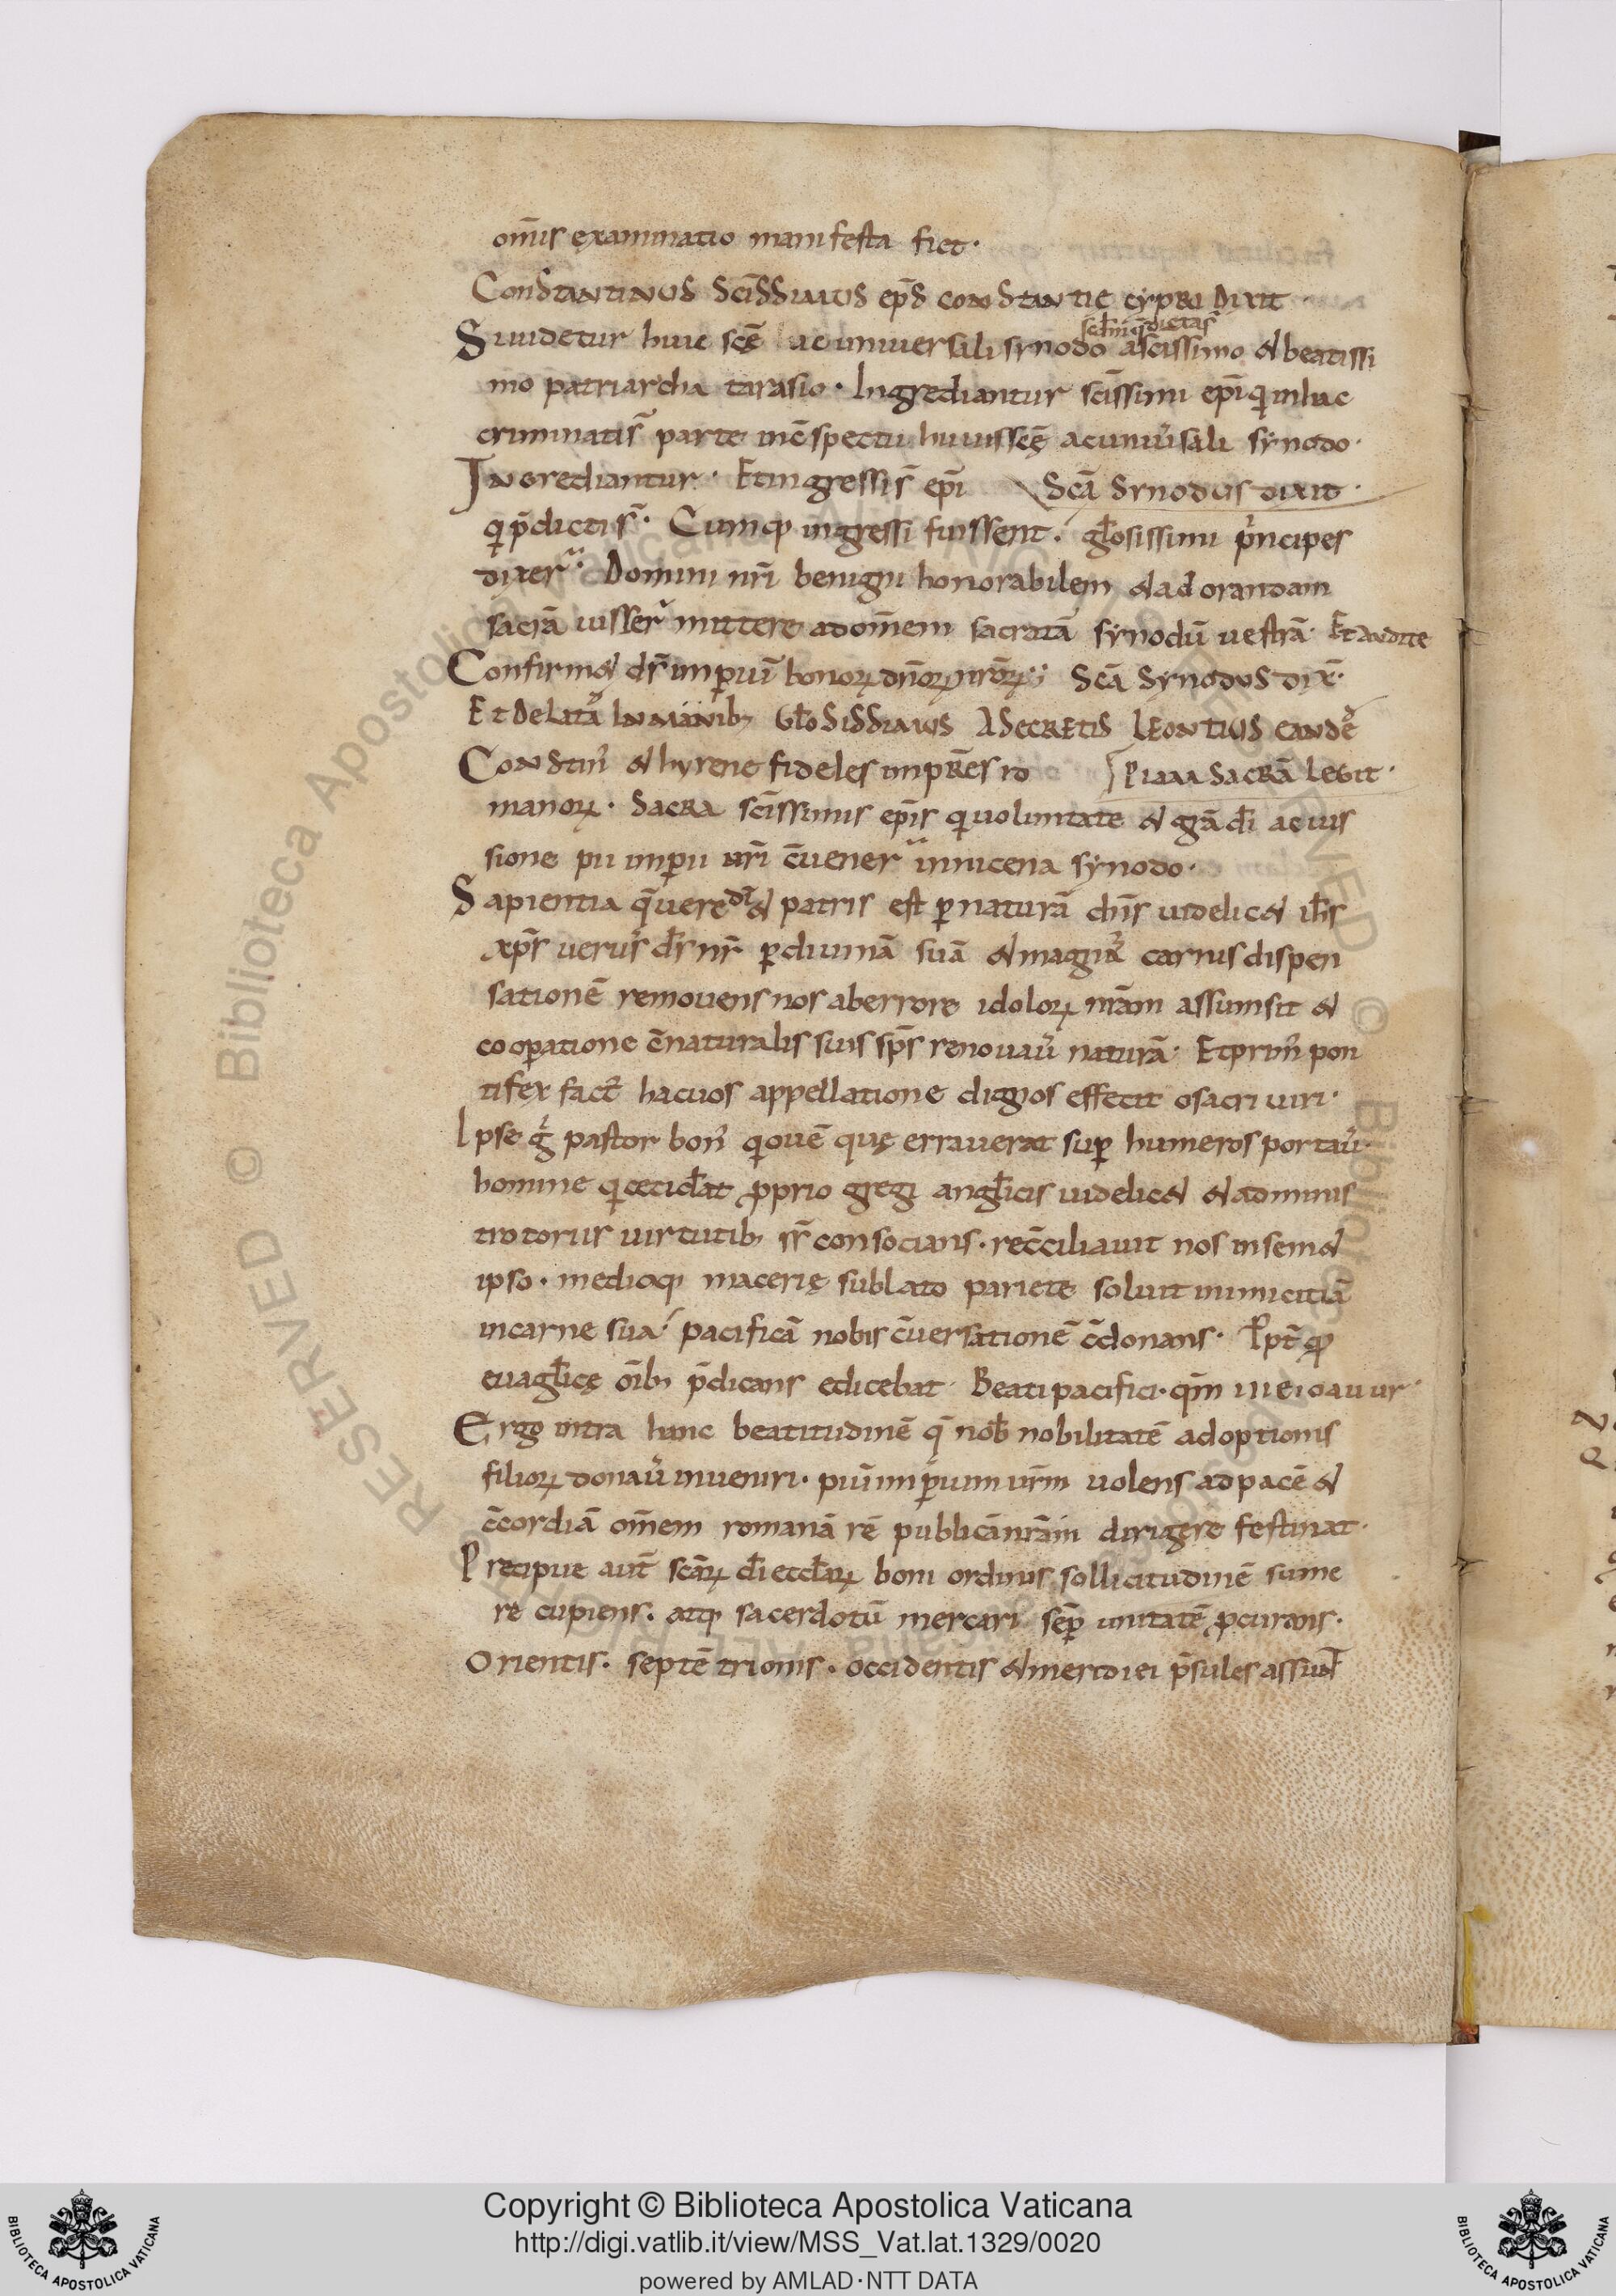 om̄is examinatio manifesta fiet·
Constantinus sc̄issimus ep̄s constantię cypri dixit
Si uidetur huic scę̄ ac uniuersali synodo a sc̄issimo & beatissi
mo patriarcha tarasio· Ingrediantur sc̄issimi ep̄i qui in hac
criminatis parte in c̄spectu huius scę̄ ac uniūsali synodo·
Ingrediantur· Et ingressis ep̄i Sc̄a Synodus dixit·
q p̄dicti s̄· Cumq; ingressi fuissent· gl̄osissimi prīncipes
dixer̄· Domini nr̄i benigni honorabilem & adorandam
sacrā iusser̄ mittere ad om̄em sacratā synodū uestrā· Et audite
Confirm& ds̄ imperiū bonoꝝ dn̄oꝝ nr̄oꝝ· Sc̄a Synodus dix̄·
Et delata in manib; gl̄osissimus Asecretis Leontius
Constin̄ & hyrene fideles impres ro Piam sacrā legit·
manoꝝ· Sacra sc̄issimis ep̄is qui uoluntate & gr̄a dī ac ius
sione pii imperii nr̄i c̄uener̄ in nicena synodo·
Sapientia q̄ uere dī & patris est per naturā chr̄s uidelic& ih̄s
xp̄s uerus ds̄ nr̄ per diuinā suā & magnā carnis dispen
sationē remouens nos ab errore idoloꝝ nr̄am assumsit &
cooperatione c̄naturalis suis sp̄s renouaū naturā· Et prim̄ pon
tifex fact̄ hac uos appellatione dignos effecit o sacri uiri·
Ipse g̊ pastor bon̄ qui ouē quę errauerat super humeros portaū·
homine qui ceciderat proprio gregi angl̄icis uidelic& & adminis
tratoriis uirtutib; s̄ consocians· rec̄ciliauit nos in sem&
ipso· medioq; macerię sublato pariete soluit inimicitiā
in carne sua· pacificā nobis c̄uersationē c̄donans· Propt̄ qd
euagl̄icę om̄ib; p̄dicans edicebat· Beati pacifici· qm̄
Ergo intra hanc beatitudinē q̄ nob̄ nobilitatē adoptionis
filioꝝ donaū inueniri· piū imperium nr̄m uolens ad pacē &
c̄cordiā om̄em romanā rē publicā nr̄am dirigere festinat·
Precipue aut̄ sc̄aꝝ dī eccl̄aꝝ boni ordinis sollicitudinē sume
re cupiens· atq; sacerdotū mercari semper unitatē procurans·
Orientis· septētrionis· occidentis & meridiei p̄sules assunt
© Biblioteca Apostolica Vaticana ALL RIGHTS RESERVED
Copyright © Biblioteca Apostolica Vaticana
http://digi.vatlib.it/view/MSS_Vat.lat.1329/0020
powered by AMLAD·NTT DATA
BIBLIOTECA APOSTOLICA VATICANA
BIBLIOTECA APOSTOLICA VATICANA